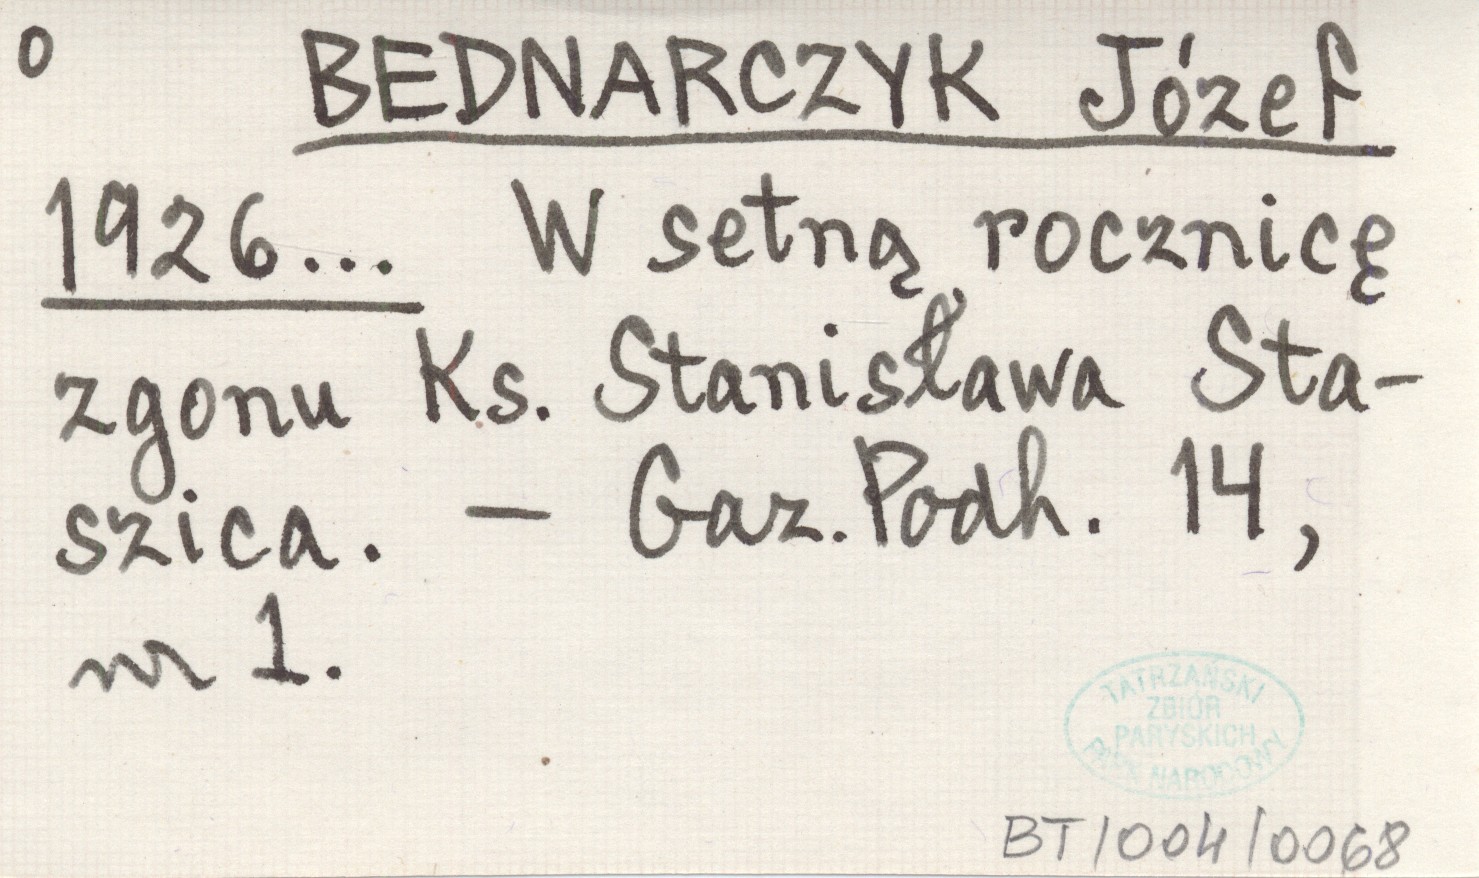 o BEDNARCZYK Józef
1926... W setną rocznicę
zgonu Ks. Stanisława Sta-
szica. — Gaz. Podh. 14,
nr 1.
TATRZAŃSKI
ZBIÓR
PARYSKICH
PARK NARODOWY
BT/004/0068